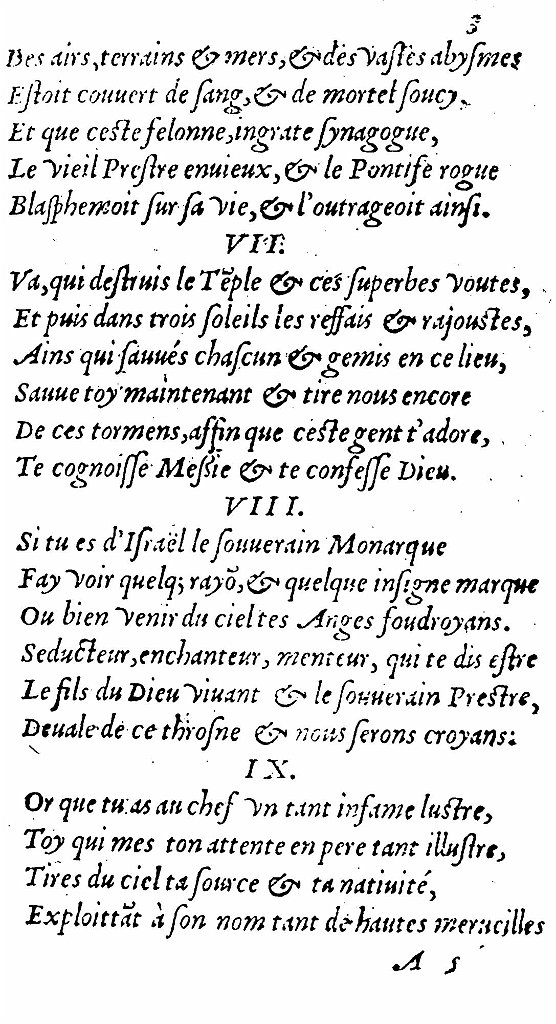 3
Des airs, terrains & mers, & des vastes abyſmes
Eſtoit couuert de ſang, & de mortel ſoucy,
Et que ceſte felonne, ingrate ſynagogue,
Le vieil Preſtre enuieux, & le Pontife rogue
Blaſphemoit ſur ſa vie, & l'outrageoit ainſi.
VII.
Va, qui deſtruis le Tẽple & ces ſuperbes voutes,
Et puis dans trois ſoleils les reffais & rajouſtes,
Ains qui ſauués chaſcun & gemis en ce lieu,
Sauue toy maintenant & tire nous encore
De ces tormens, affin que ceſte gent t'adore,
Te cognoiſſe Meſſie & te confeſſe Dieu.
VIII.
Si tu es d'Iſraël le ſouuerain Monarque
Fay voir quelq; rayõ, & quelque inſigne marque
Ou bien venir du ciel tes Anges foudroyans.
Seducteur, enchanteur, menteur, qui te dis eſtre
Le fils du Dieu viuant & le ſouuerain Preſtre,
Deuale de ce throſne & nous ſerons croyans:
IX.
Or que tu as au chef vn tant infame luſtre,
Toy qui mes ton attente en pere tant illuſtre,
Tires du ciel ta ſource & ta natiuité,
Exploittãt à ſon nom tant de hautes merueilles
A 5